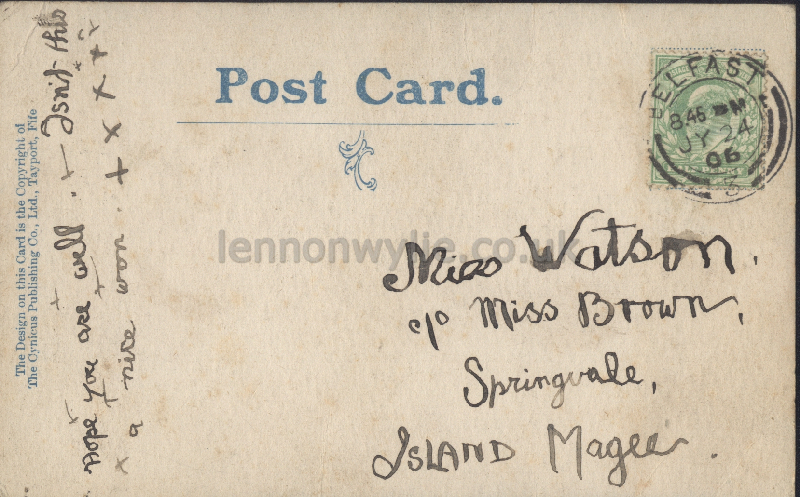 Post Card.
The Design on this Card is the Copyright of
The Cynicus Publishing Co., Ltd., Tayport, Fife
Hope you are well. - Isn't this
x a nice won. + x x x x
BELFAST
8.45 PM
JY 24
06
lennonwylie.co.uk
Miss Watson.
c/o Miss Brown,
Springvale,
ISLAND Magee.